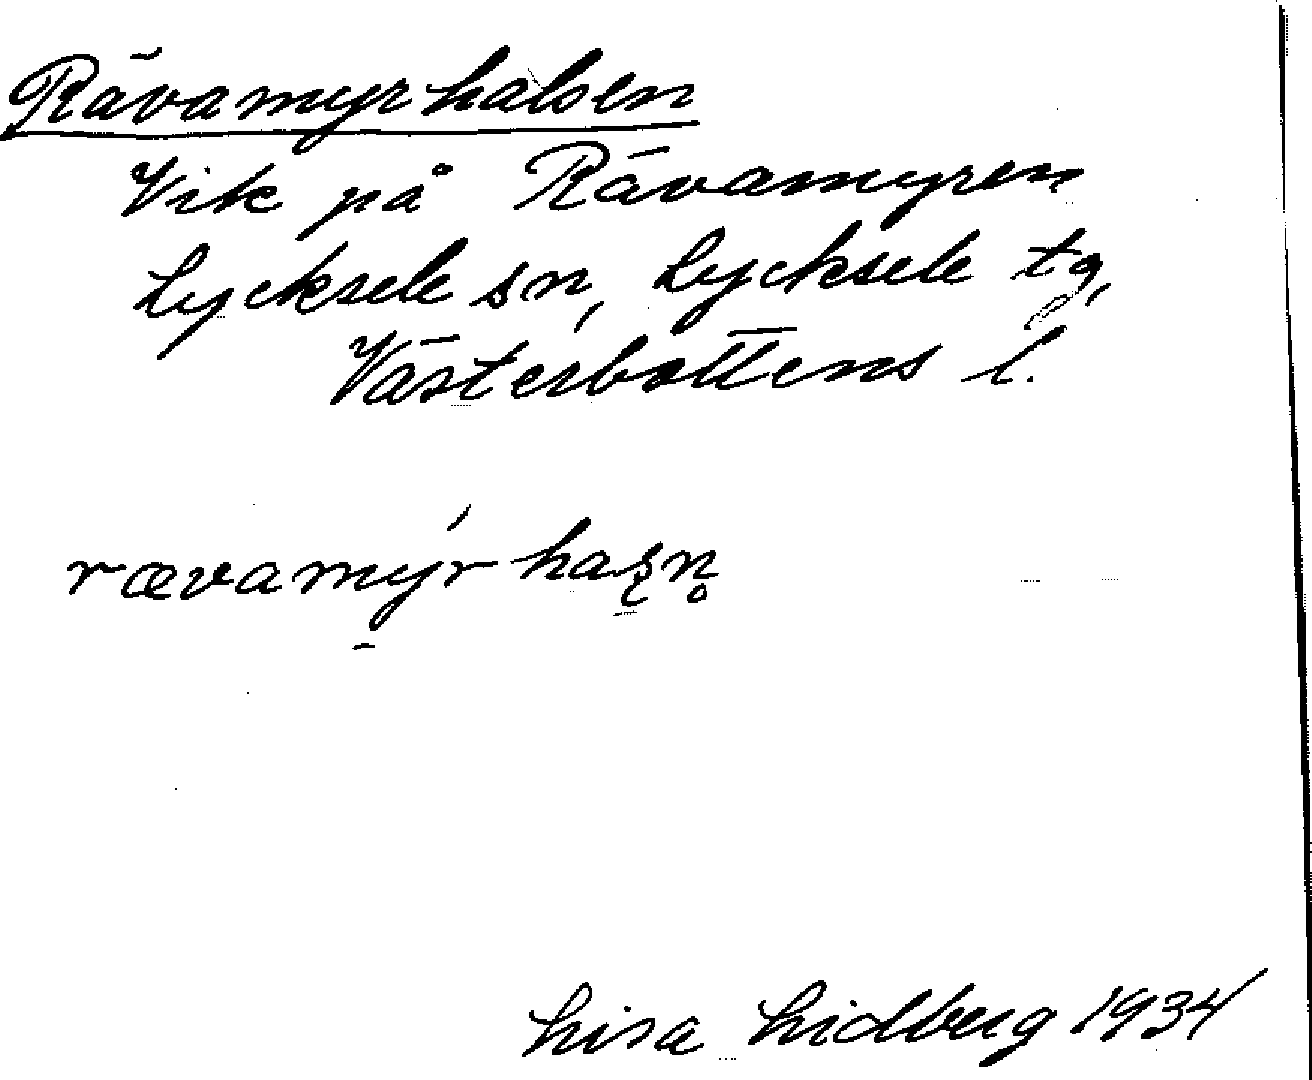 Rävamyrhalsen
Vik på Rävamyren
Lycksele sn, Lycksele tg,
Västerbottens l.
rævamýr haʂn̥
Lisa Lidberg 1934